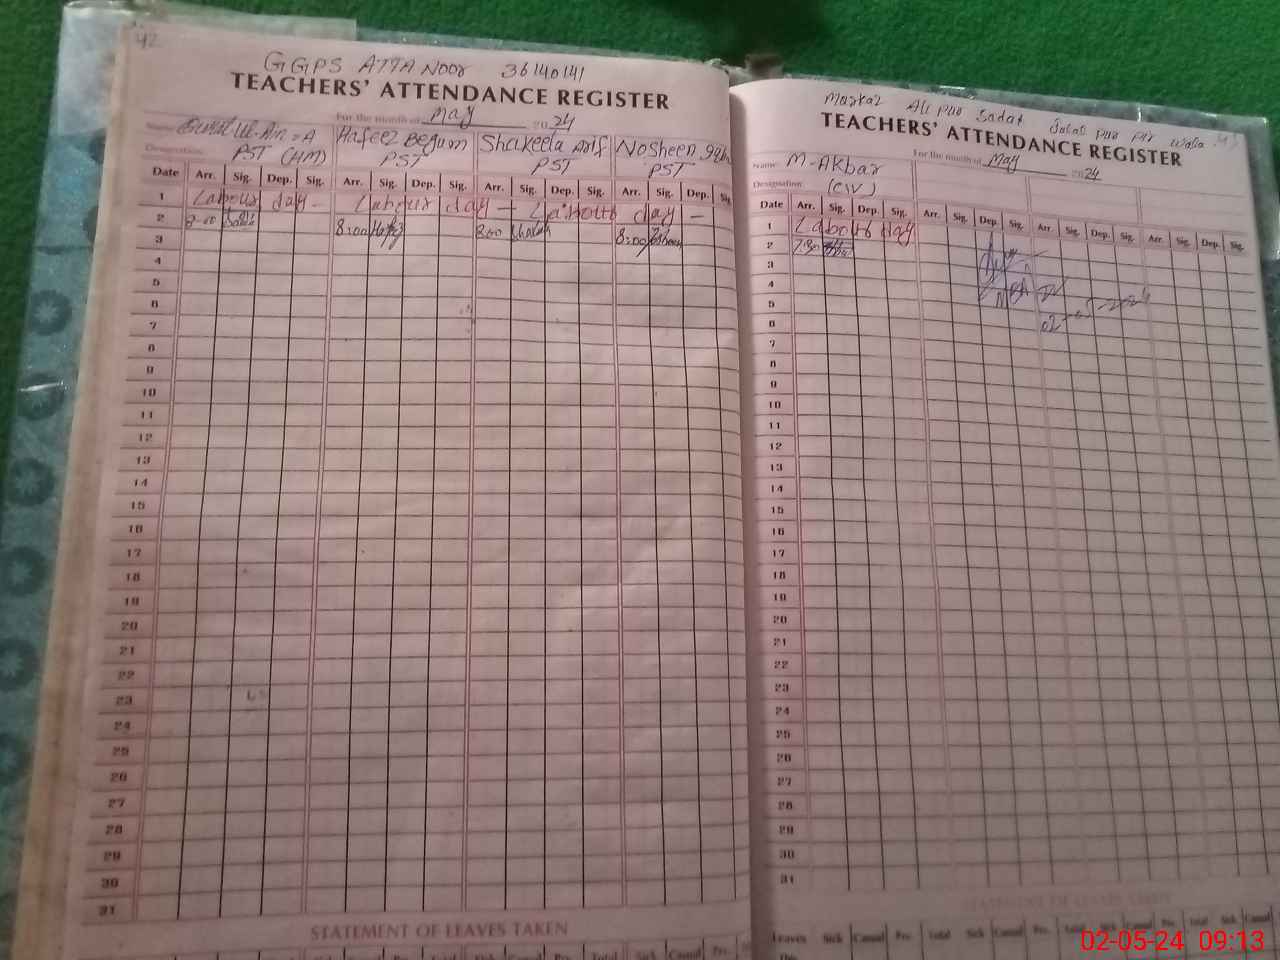 42
GGPS ATTA Noor 36140141
TEACHERS' ATTENDANCE REGISTER
For the month of May 2024
Name
Hafeez Begum Shakeela Arif Nosheen
Designation
PST (HM) PST PST PST
Date Arr. Sig. Dep. Sig. Arr. Sig. Dep. Sig. Arr. Sig. Dep. Sig. Arr. Sig. Dep. Sig
1 Labour day - Labour day - Labour day -
2 8:00 8:00 8:00 8:00
3
4
5
6
7
8
9
10
11
12
13
14
15
16
17
18
19
20
21
22
23
24
25
26
27
28
29
30
31
STATEMENT OF LEAVES TAKEN
Sick Casual Prv. Total Sick Casual Prv.
Markaz Ali Pur Sadat Jalal Pur Pir Wala 43
TEACHERS' ATTENDANCE REGISTER
For the month of May 2024
Name: M-Akbar
Designation: (CIV)
Date Arr. Sig. Dep. Sig. Arr. Sig. Dep. Sig. Arr. Sig. Dep. Sig. Arr. Sig. Dep. Sig.
1 Labour day
2 7:30
3
4
5
6 02-05-2024
7
8
9
10
11
12
13
14
15
16
17
18
19
20
21
22
23
24
25
26
27
28
29
30
31
STATEMENT OF LEAVES TAKEN
Leaves Sick Casual Prv. Total Sick Casual Prv. Total Sick Casual Prv. Total Sick Casual
02-05-24 09:13